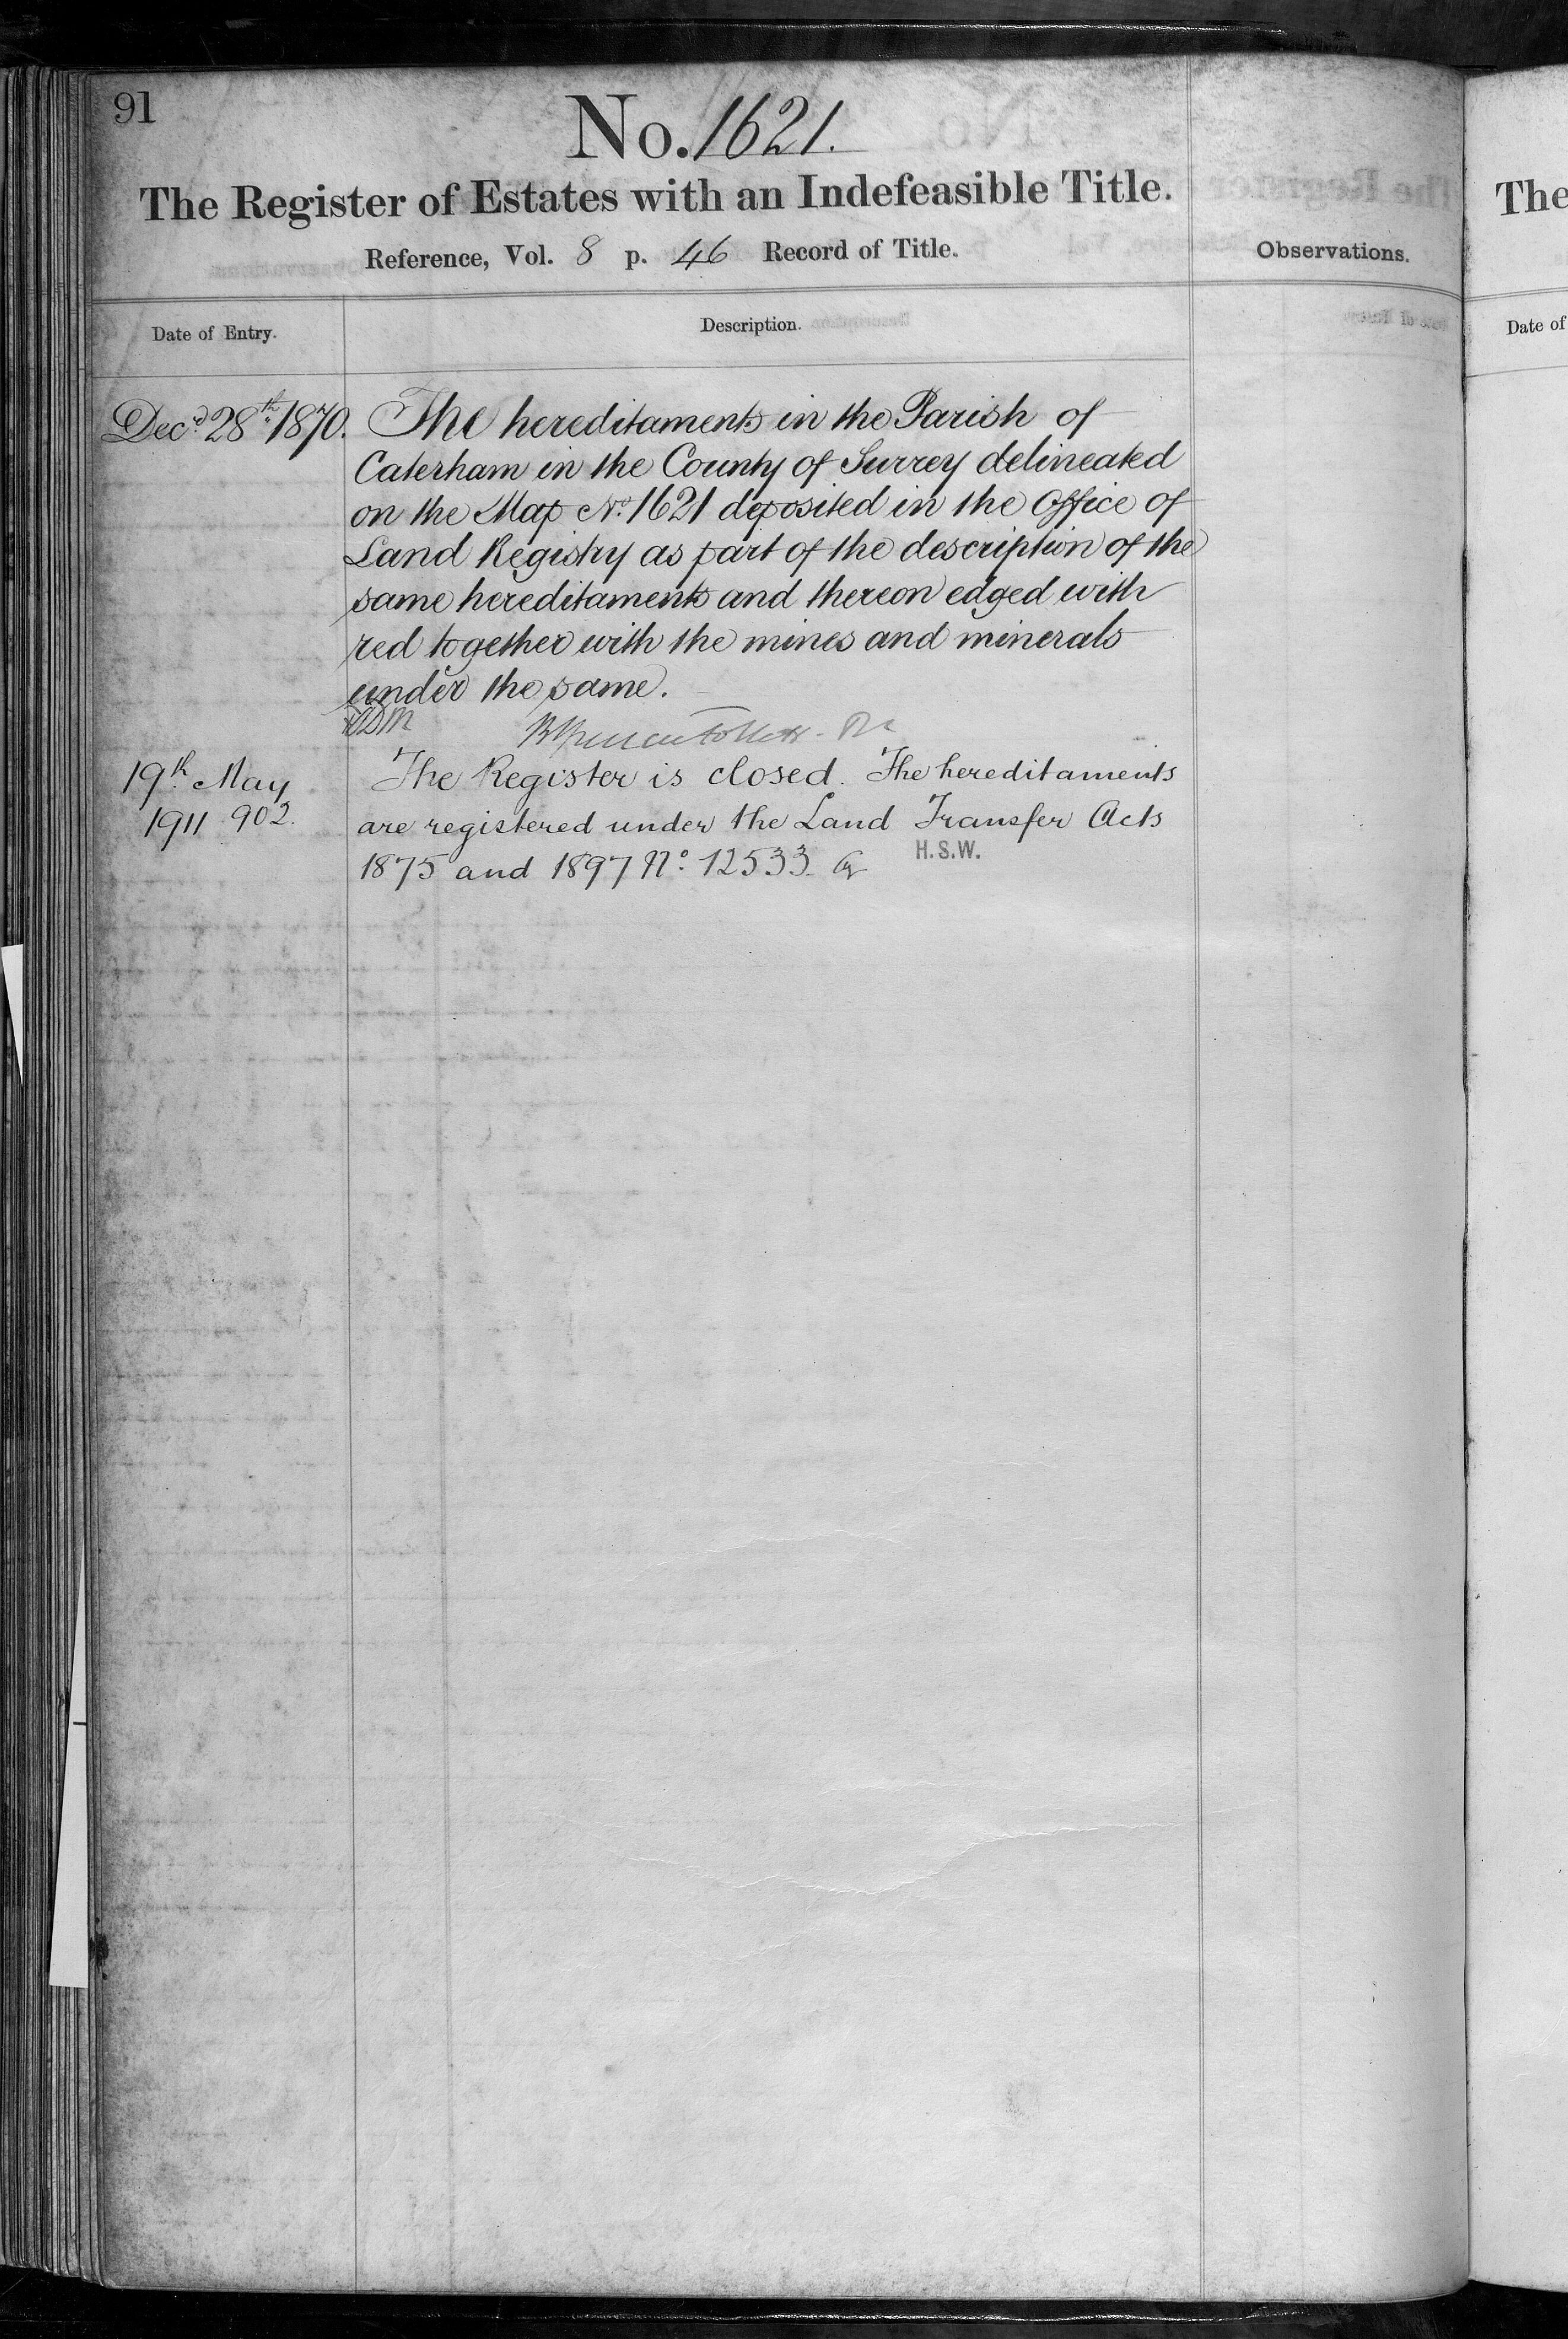 91
No. 1621.
The Register of Estates with an Indefeasible Title.
Reference, Vol. 8 p. 46 Record of Title.
Observations.
The
Date of Entry.
Description.
Date of
Decr 28th 1870.
The hereditaments in the Parish of
Caterham in the County of Surrey delineated
on the Map No. 1621 deposited in the Office of
Land Registry as part of the description of the
same hereditaments and thereon edged with
red together with the mines and minerals
under the same.
19th May
1911 902.
The Register is closed. The hereditaments
are registered under the Land Transfer Acts
1875 and 1897 No. 12533
H.S.W.